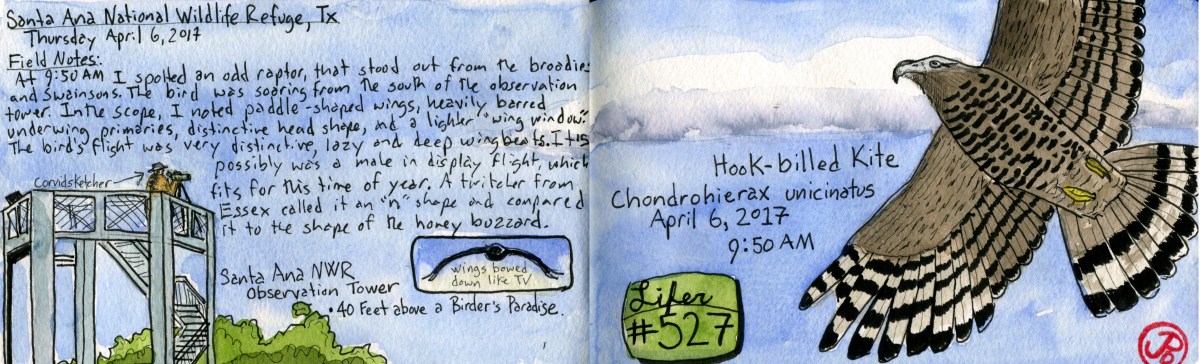 Santa Ana National Wildlife Refuge, Tx
Thursday April 6, 2017
Field Notes:
At 9:50 AM I spotted an odd raptor, that stood out from the broadies
and Swainsons. The bird was soaring from the south of the observation
tower. In the scope, I noted paddle-shaped wings, heavily barred
underwing primaries, distinctive head shape, and a lighter "wing window".
The bird's flight was very distinctive, lazy and deep wing beats. It is
possibly was a male in display flight, which
fits for this time of year. A twitcher from
Essex called it an "n" shape and compared
it to the shape of the honey buzzard.
Corvidsketcher
wings bowed
down like TV
Santa Ana NWR
Observation Tower
• 40 Feet above a Birder's Paradise.
Hook-billed Kite
Chondrohierax unicinatus
April 6, 2017
9:50 AM
Lifer
#527